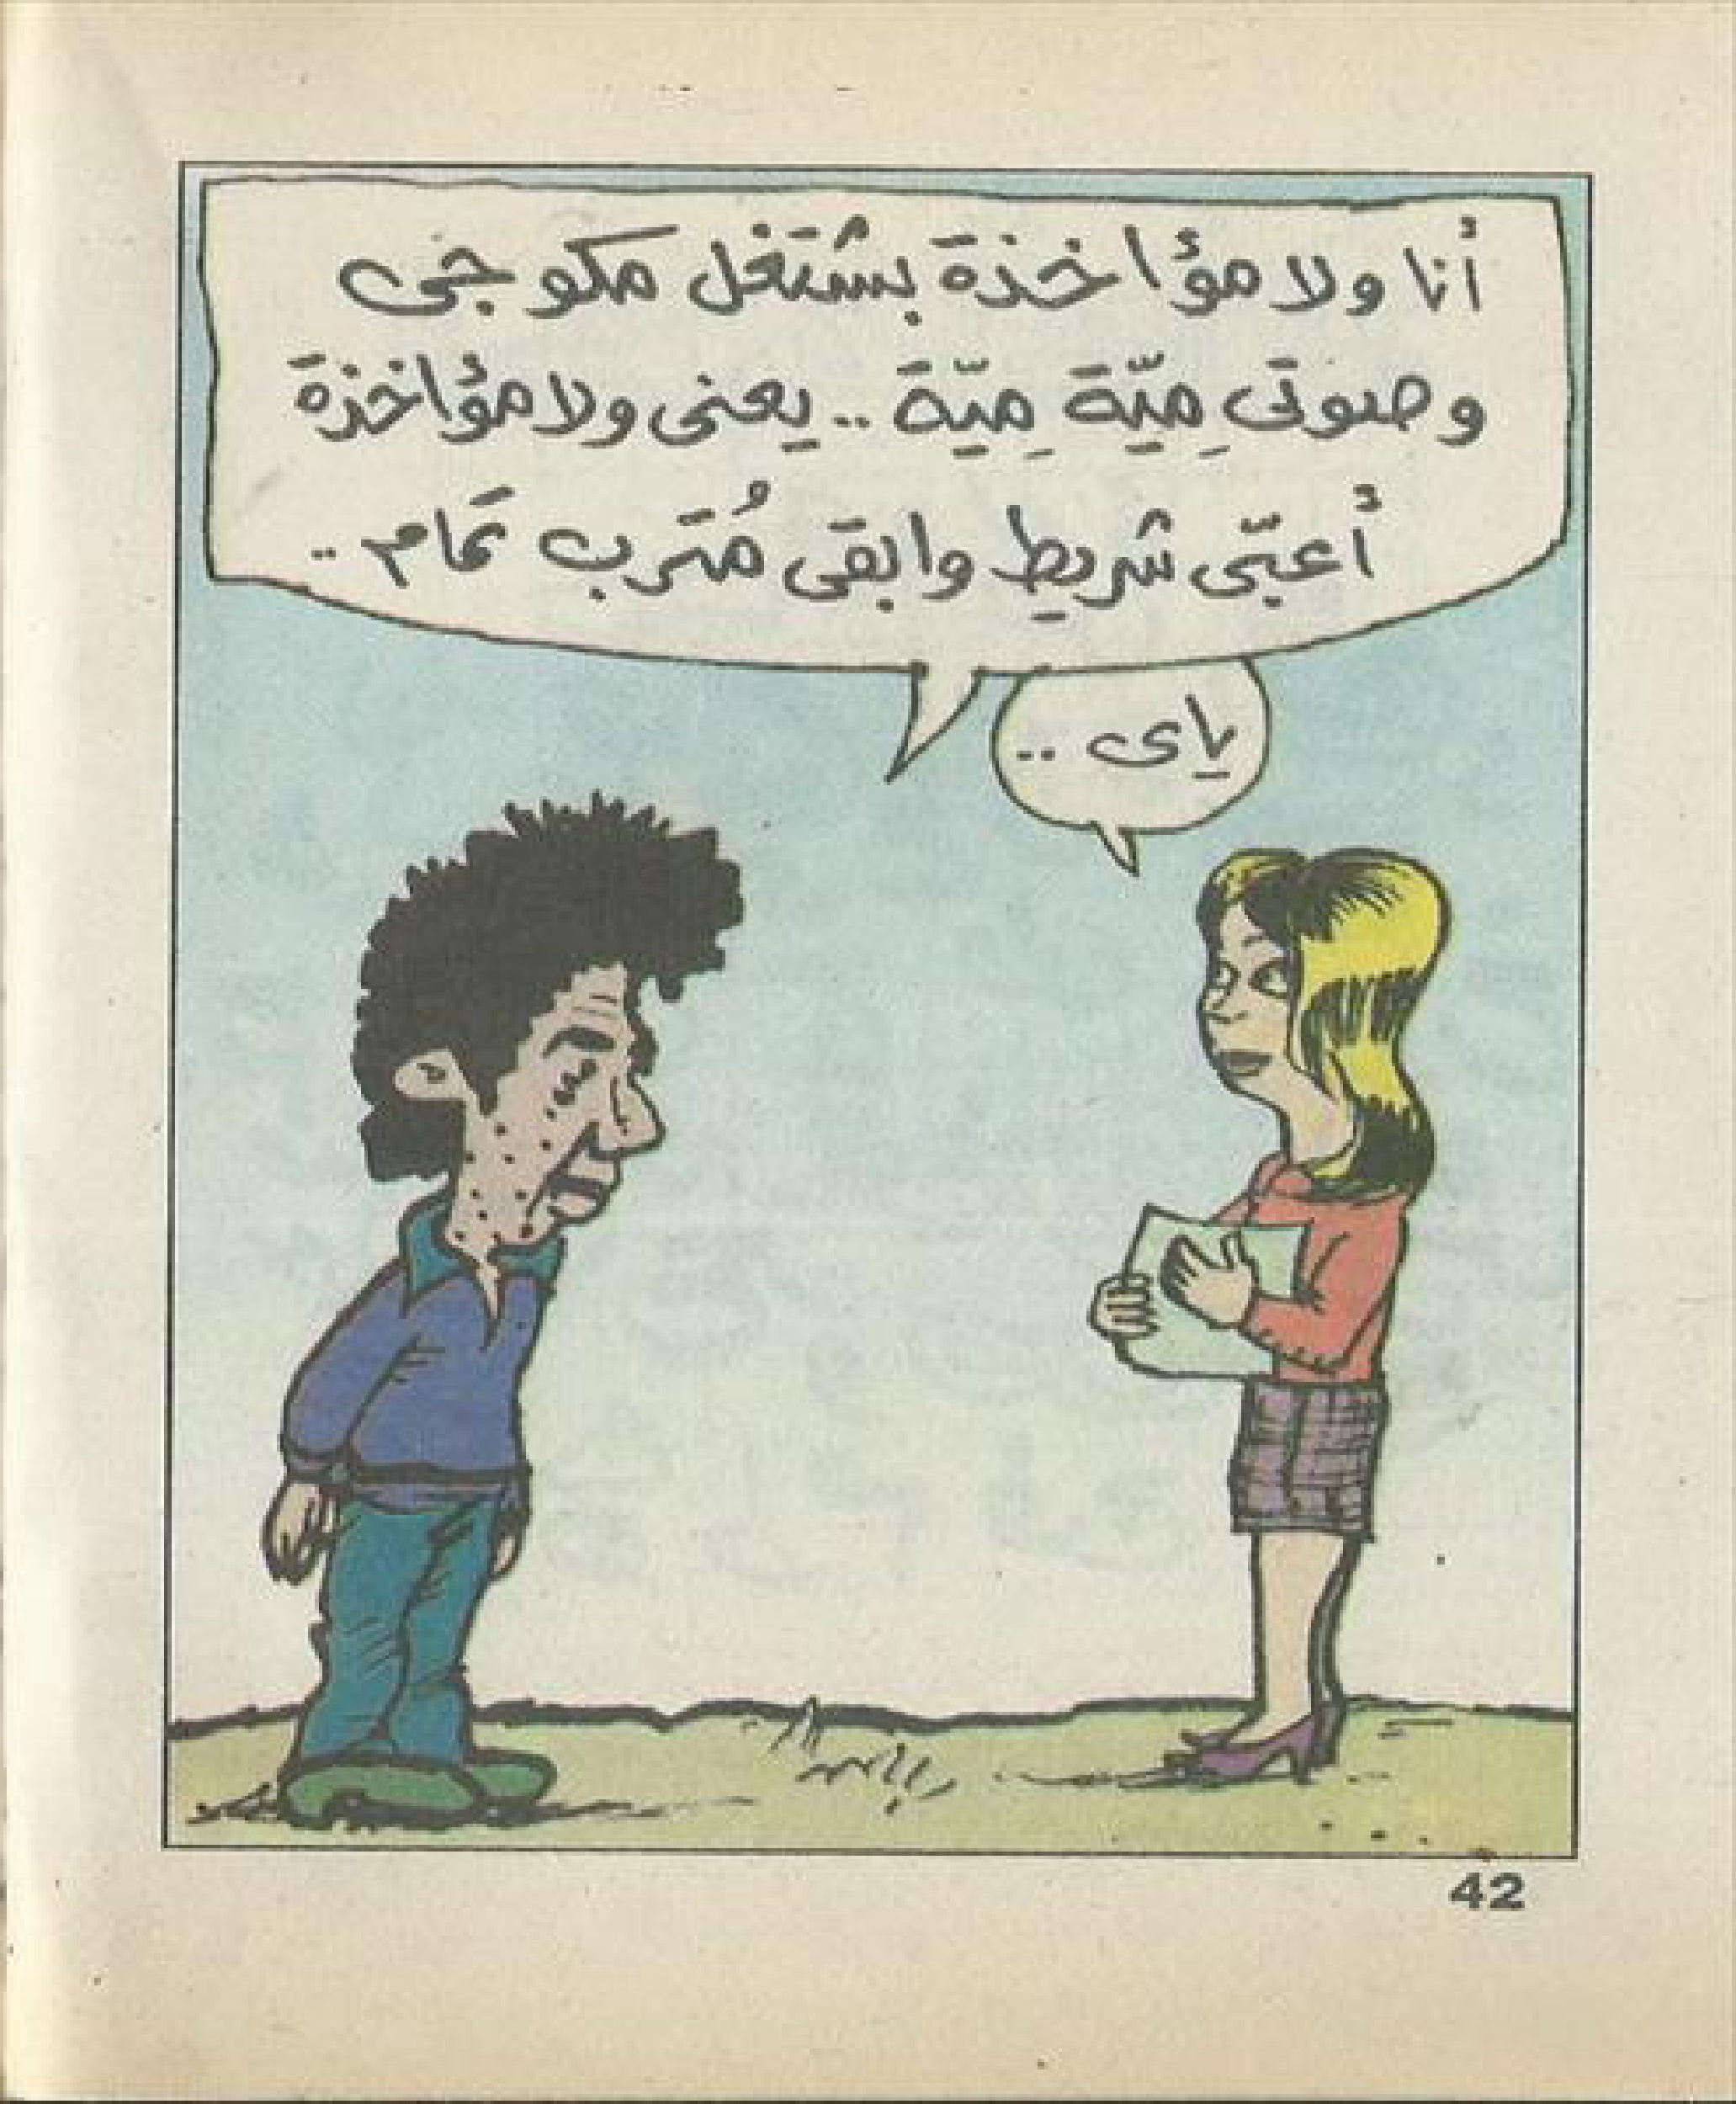 أنا ولا مؤاخذة بشتغل مكوجى
وصوتى مِيّة مِيّة .. يعنى ولا مؤاخذة
أعبّى شريط وابقى مُترب تمام ..
ياى ..
42